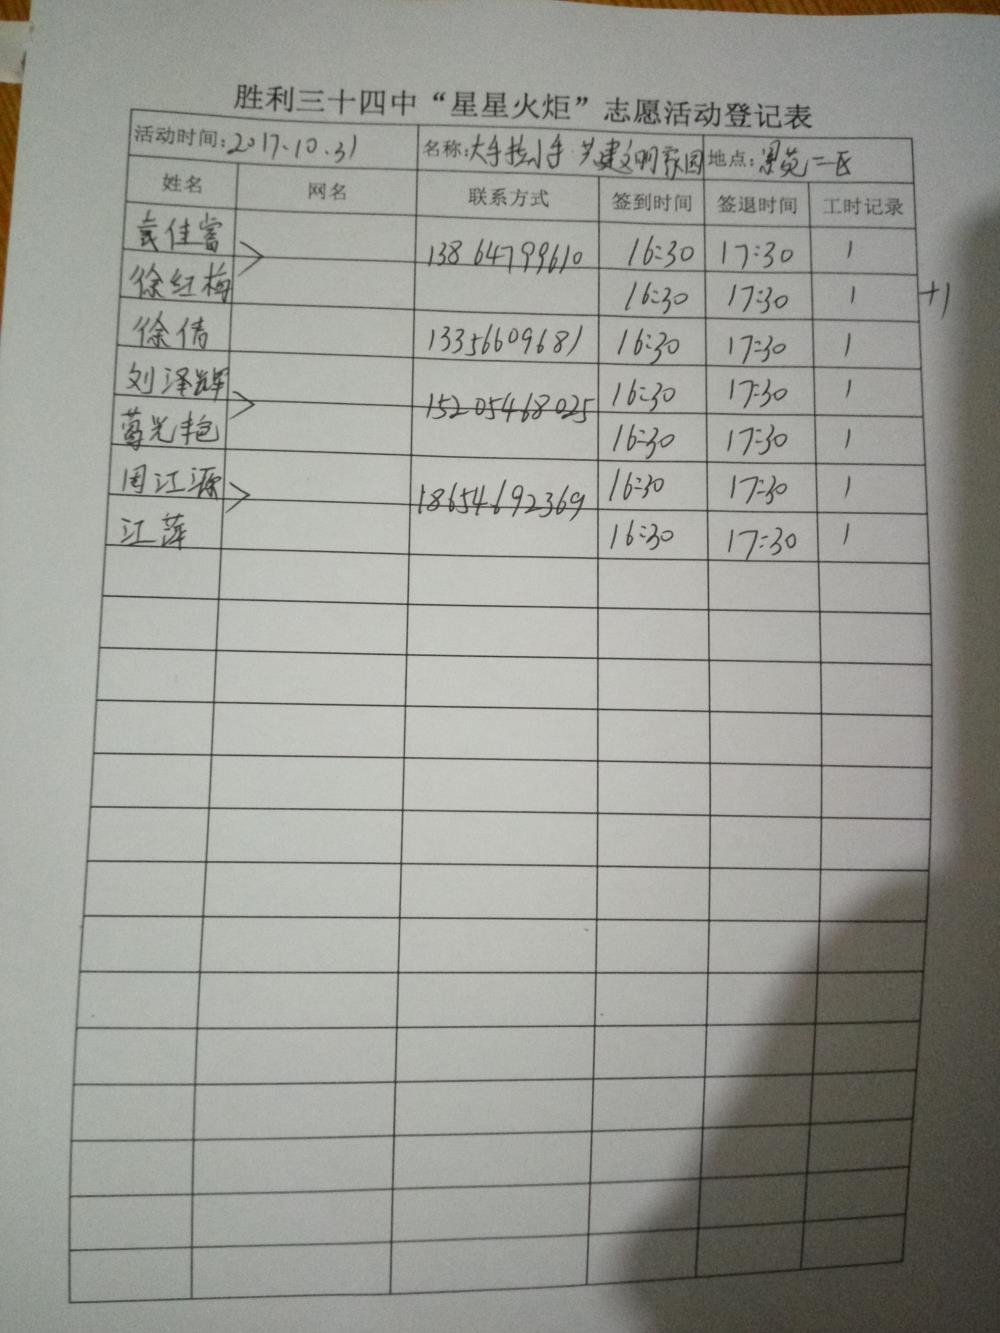 胜利三十四中“星星火炬”志愿活动登记表
活动时间:2017.10.31 名称:大手拉小手 共建文明家园 地点:景苑二区
姓名 网名 联系方式 签到时间 签退时间 工时记录
佳富 13864799610 16:30 17:30 1
徐红梅 16:30 17:30 1 +1
徐倩 13356609681 16:30 17:30 1
刘泽辉 15205468025 16:30 17:30 1
光艳 16:30 17:30 1
周江源 18654692369 16:30 17:30 1
江萍 16:30 17:30 1